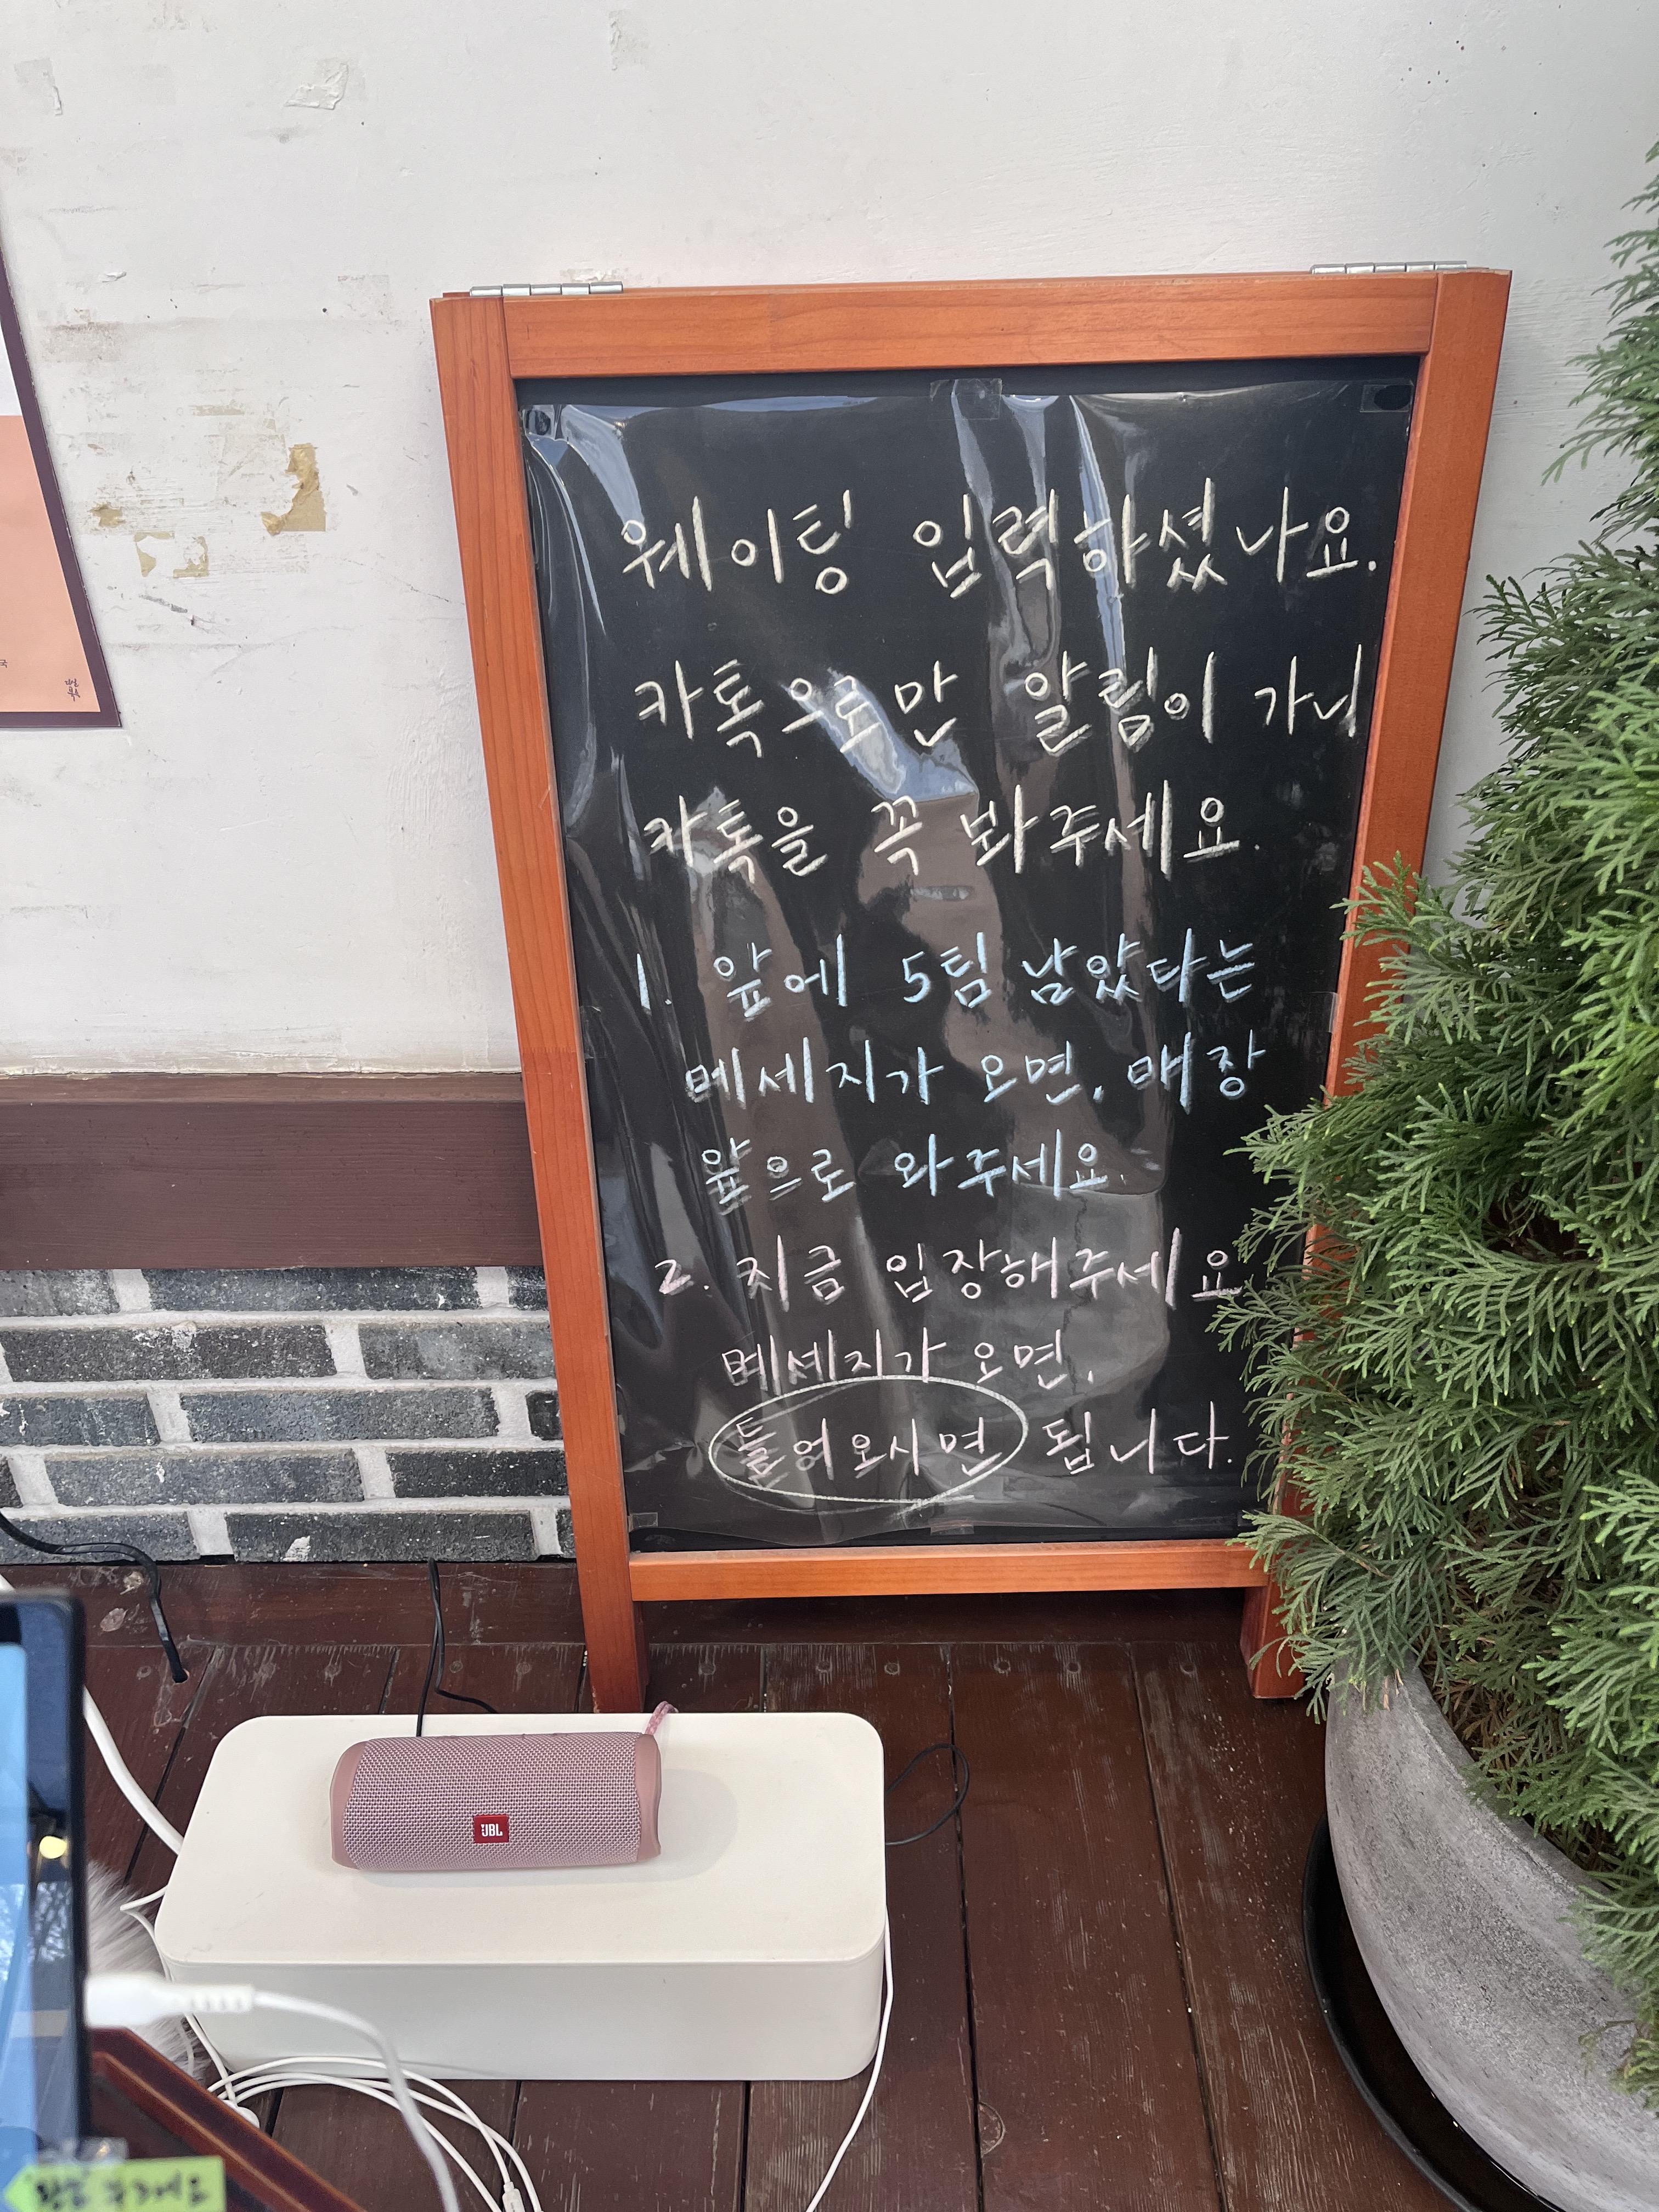 웨이팅 입력하셨나요.
카톡으로만 알림이 가니
카톡을 꼭 봐주세요.
1. 앞에 5팀 남았다는
메세지가 오면, 매장
앞으로 와주세요.
2. 지금 입장해주세요
메세지가 오면,
들어오시면 됩니다.
JBL